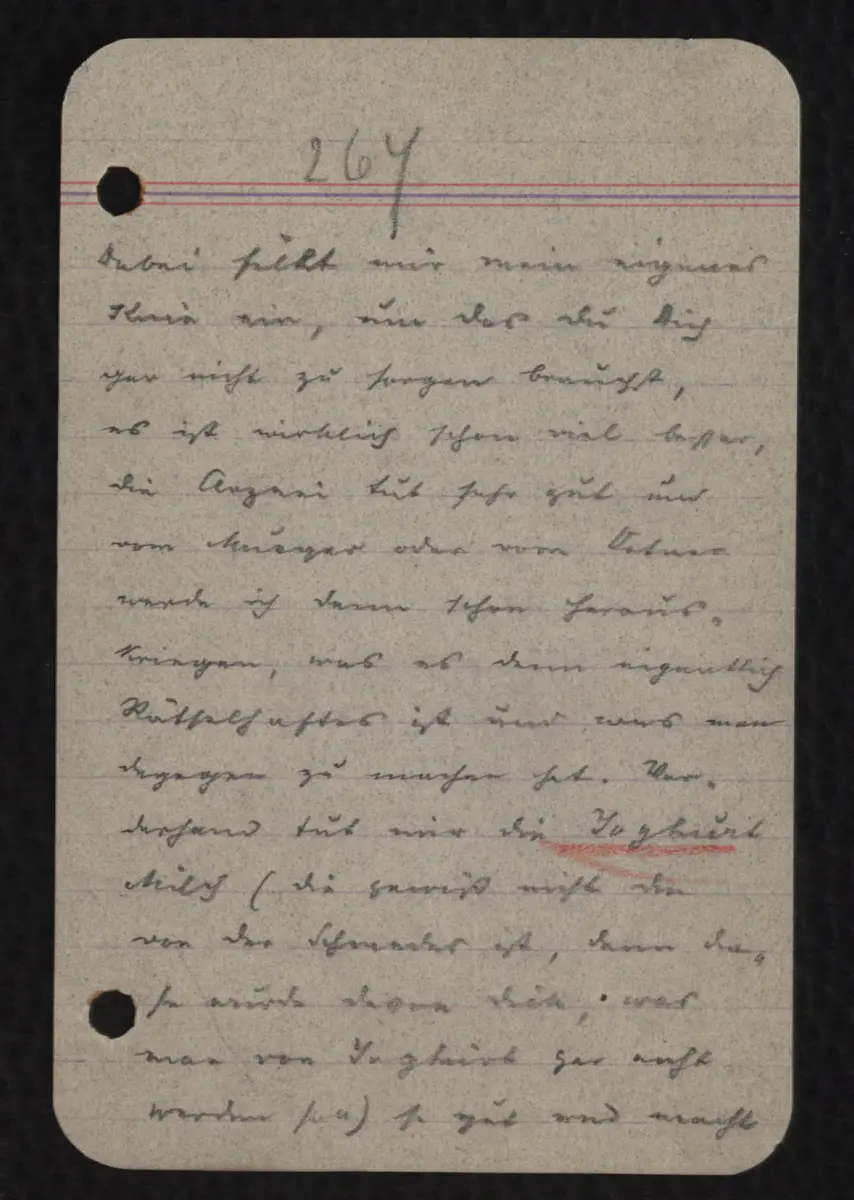 267
Dabei fällt mir mein eigenes
Knie ein, um das du Dich
gar nicht zu sorgen brauchst,
es ist wirklich schon viel besser,
die Arznei tut sehr gut und
vom oder vom
werde ich dann schon heraus„
kriegen, was es denn eigentlich
Rätselhaftes ist und was man
dagegen zu machen hat. Vor„
derhand tut mir die Yoghurt
Milch (die gewiß nicht die
von der ist, denn die„
se wurde davon dick, was
man von Yoghurt gar nicht
werden soll) so gut und macht